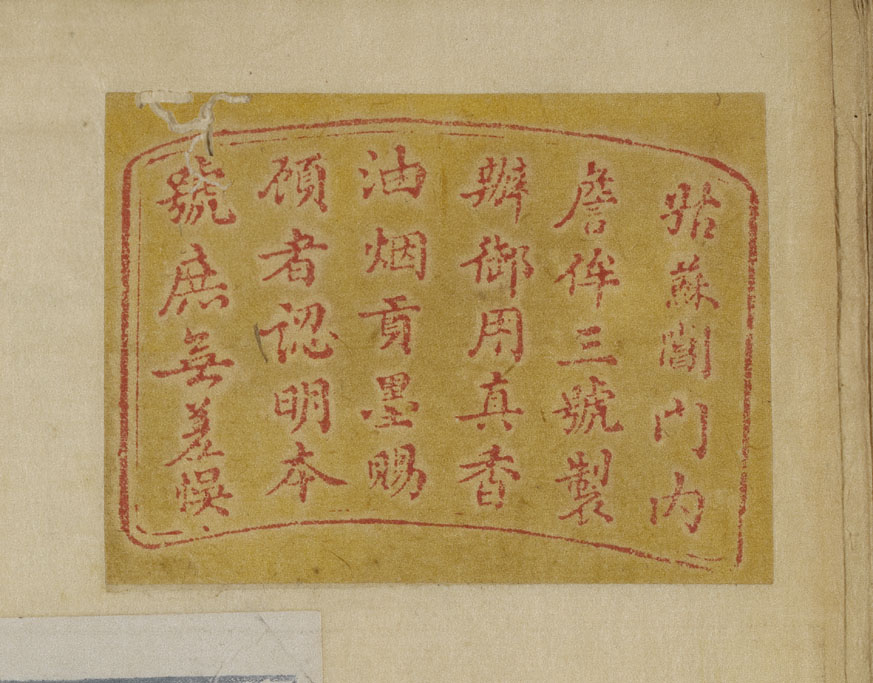 姑蘇閶門內
詹侔三號製
辦御用真香
油烟貢墨賜
顧者認明本
號庶無差悞